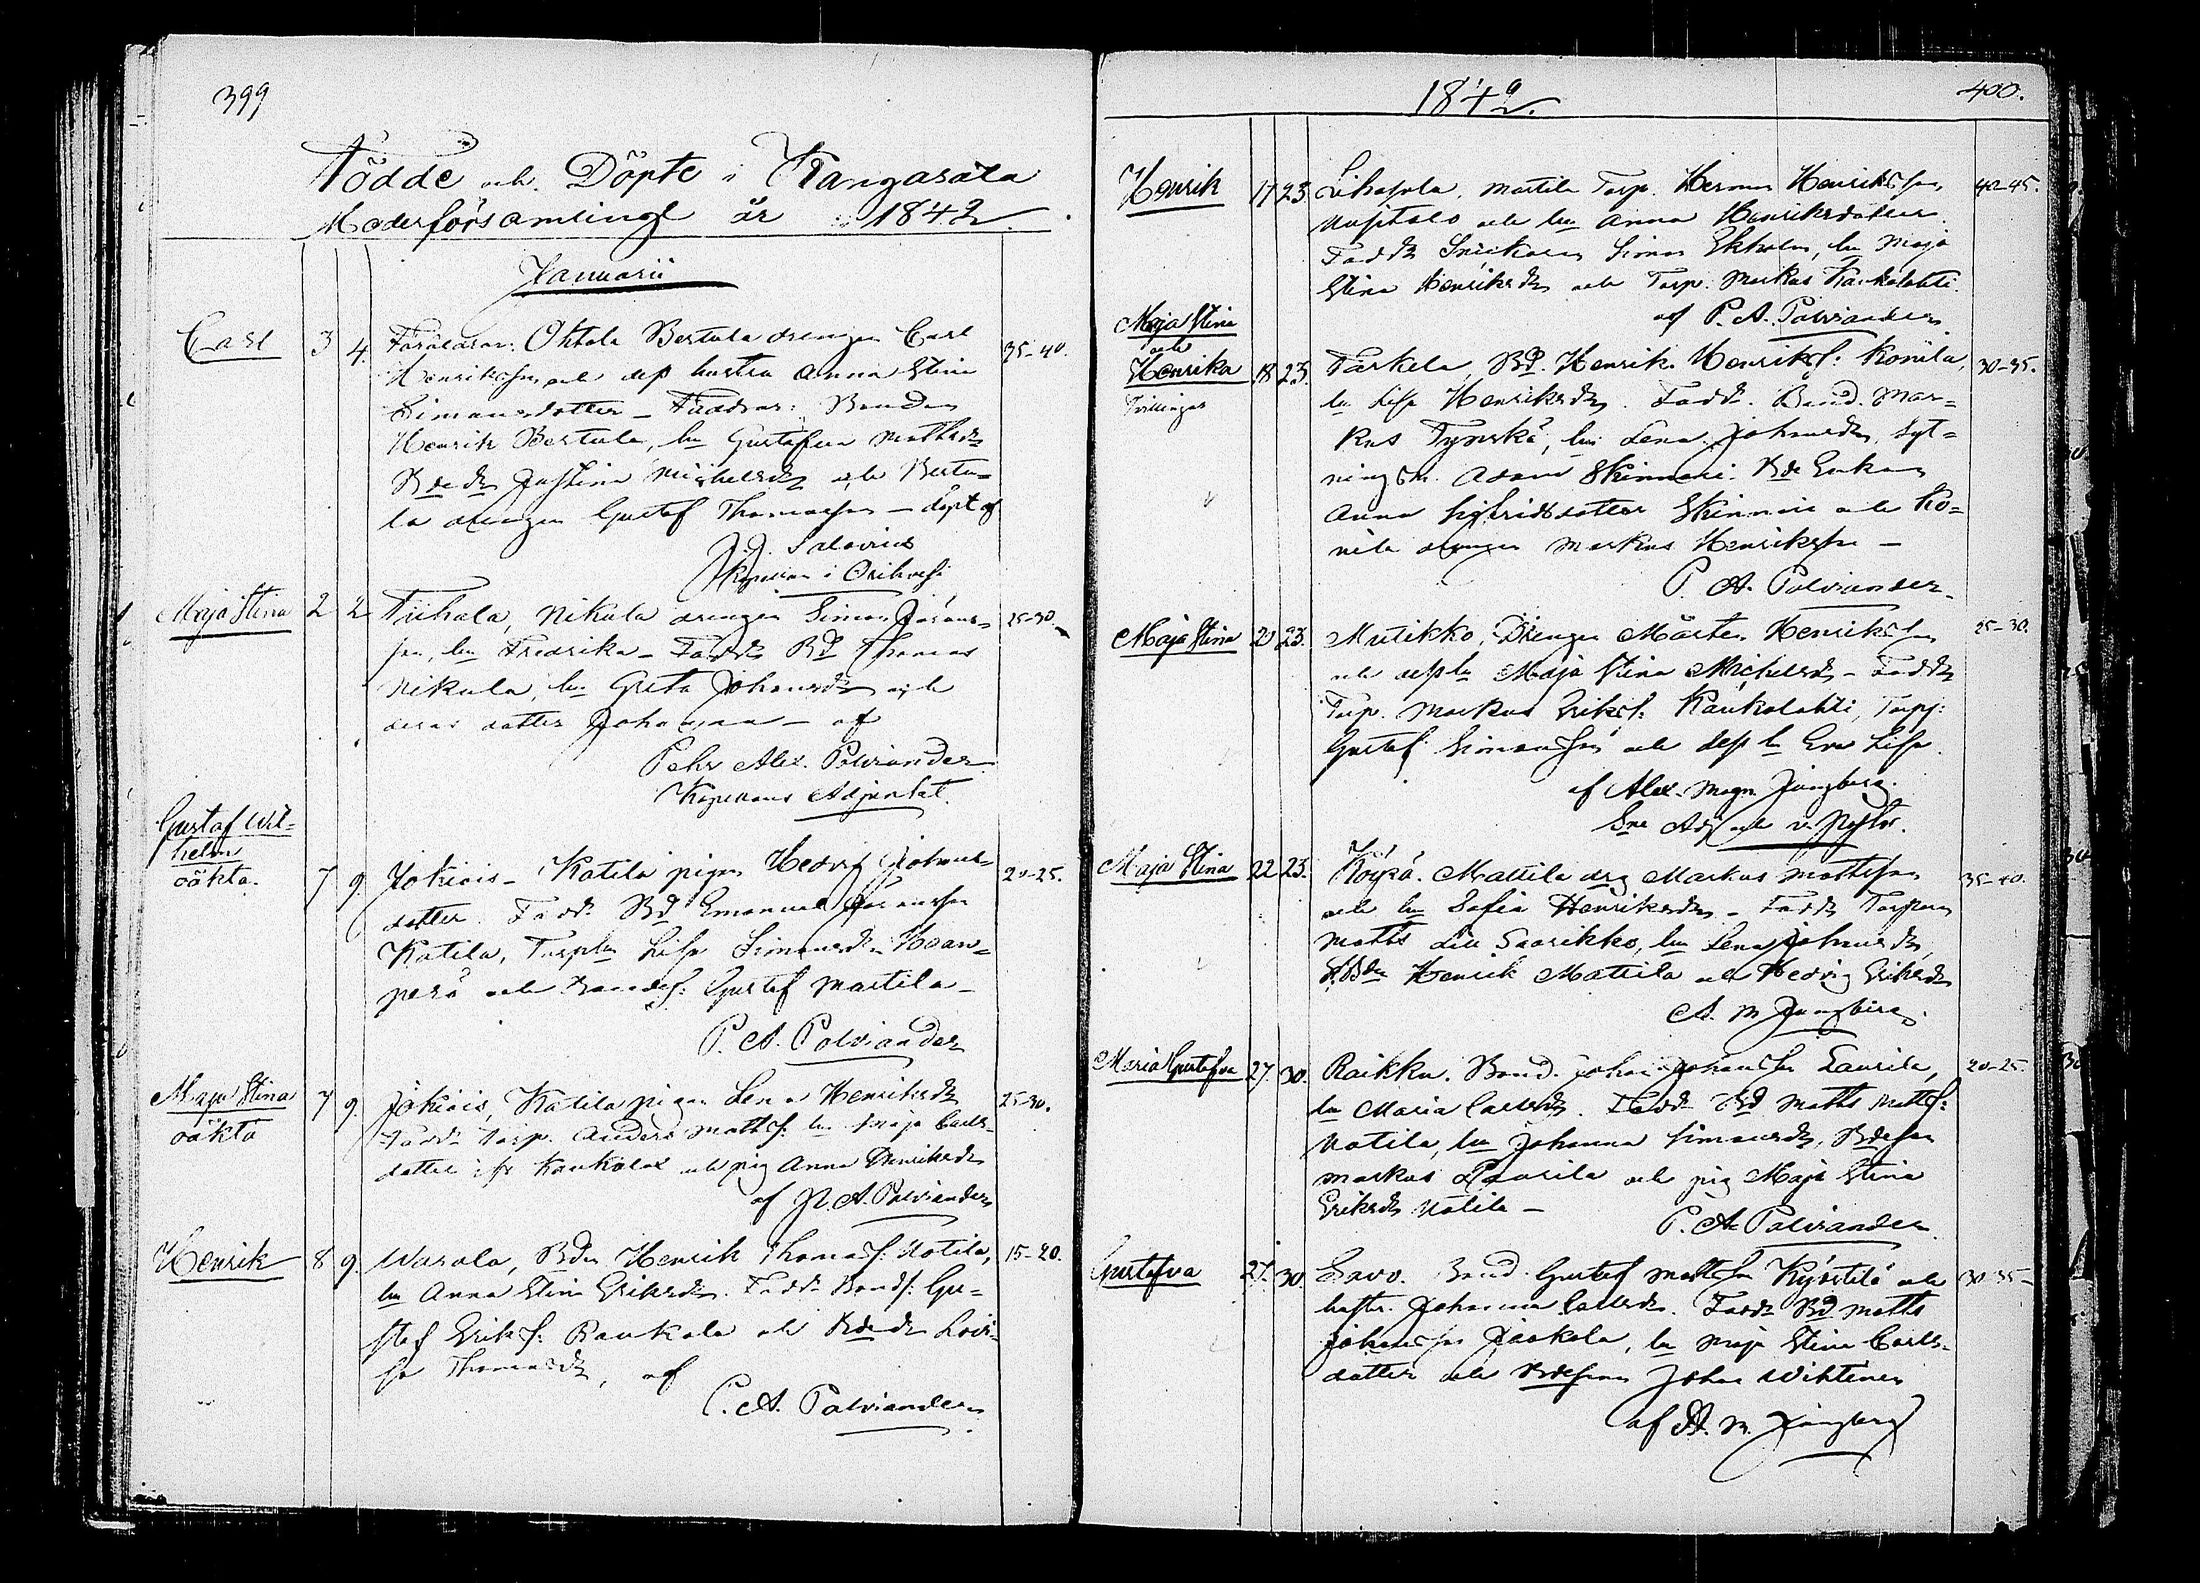 399
Födde och Döpte i Kangasala
Moderförsamlingl år 1842.
Januarii
Carl 3 4. Föräldrar: Ohtola Bertula drengen Carl 35-40.
Henriksson och dess hustru Anna Stina
Simonsdotter - Faddrar: Bonden
Henrik Bertula, hu Gustafva Mattsdr
Bdedr Justina Michelsdr och Bertu=
la drengen Gustaf Thomasson - döpt af
J. J. Salovius
Kapellan i Orihvesi
Maja Stina 2 2 Tiihala, Nikula drengen Simon Görans= 25-30.
son, hu Fredrika - Faddr Bd Thomas
Nikula, hu Greta Johansdr och
deras dotter Johanna - af
Pehr Alex. Polviander
Kapellans Adjunkt.
Gustaf Wil=
helm
oäkta. 7 9. Jokiois - Katila pigan Hedvig Johans= 20-25.
dotter. Fadd. Bd Emanuel Göransson
Katila, Torphu Lisa Simonsdr Haan=
perä och Bondes: Gustaf Martila -
P. A. Polviander
Maja Stina
oäkta 7 9. Jokiois, Katila pigan Lena Henriksdr 25-30.
Faddr Torp. Anders Matts: hu Maja Carls=
dotter Kaukolax och pig Anna Henriksdr
af P. A. Polviander
Henrik 8 9. Warala, Bdn Henrik Thomass: Uotila, 15-20.
hu Anna Stina Eriksdr. Faddr Bonds: Gu=
staf Eriks: Raukola och Bdedr Lovi=
sa Thomasdr, af
P. A. Polviander
1842. 400.
Henrik 17 23. Liuksiala, Martila Torp. Herman Henriksson 40-45.
och hu Anna Henriksdotter.
Faddr Snickaren Simon Ekholm, hu Maja
Stina Henriksdr och Torp. Markus Kaukolahti.
af P. A. Polviander
Maja Stina
och
Henrika 18 23. Tarkela, Bd. Henrik Henriks: Konila, 30-35.
Tvillingar hu Lisa Henriksdr. Faddr. Bond. Mar=
kus Tyrskä, hu Lena Johansdr, Syt=
ningsm. Adam Skinnari. Bde Enkan
Anna Sigfridsdotter Skinnari och Ko=
nila drengen Markus Henriksson -
P. A. Polviander.
Maja Stina 20 23. Mutikko, Drengen Mårten Henriksson 25-30.
och dess hu Maja Stina Michelsdr - Faddr
Torp. Markus Eriks: Kaukolahti, Torp:
Gustaf Simonsson och dess hu Eva Lisa.
af Alex. Magn. Jungberg.
Sne Adj och v. Pastor.
Maja Stina 22 23. Köyrä. Mattila drg Markus Mattsson 35-40.
och hu Sofia Henriksdr - Faddr Torparen
Matts Saarikko, hu Lena Johansdr,
Bdn Henrik Mattila och Hedvig Eriksdr
A. M. Jungberg.
Maria Gustafva 27. 30. Raikku. Bond. Johan Johansson Laurila, 20-25.
hu Maria Carlsdr. Faddr Bd Matts Matts:
Uotila, hu Johanna Simonsdr, Bdeson
Markus Laurila och pig Maja Stina
Eriksdr Uotila -
P. A. Polviander
Gustafva 27. 30. Savo. Bond Gustaf Mattsson Kyöstilä och 30-35-
hustr. Johanna Carlsdr. Faddr Bd Matts
Johansson Jaakola, hu Maja Stina Carls=
dotter och Bdesonen Johan Wihtinen
af A. M. Jungberg